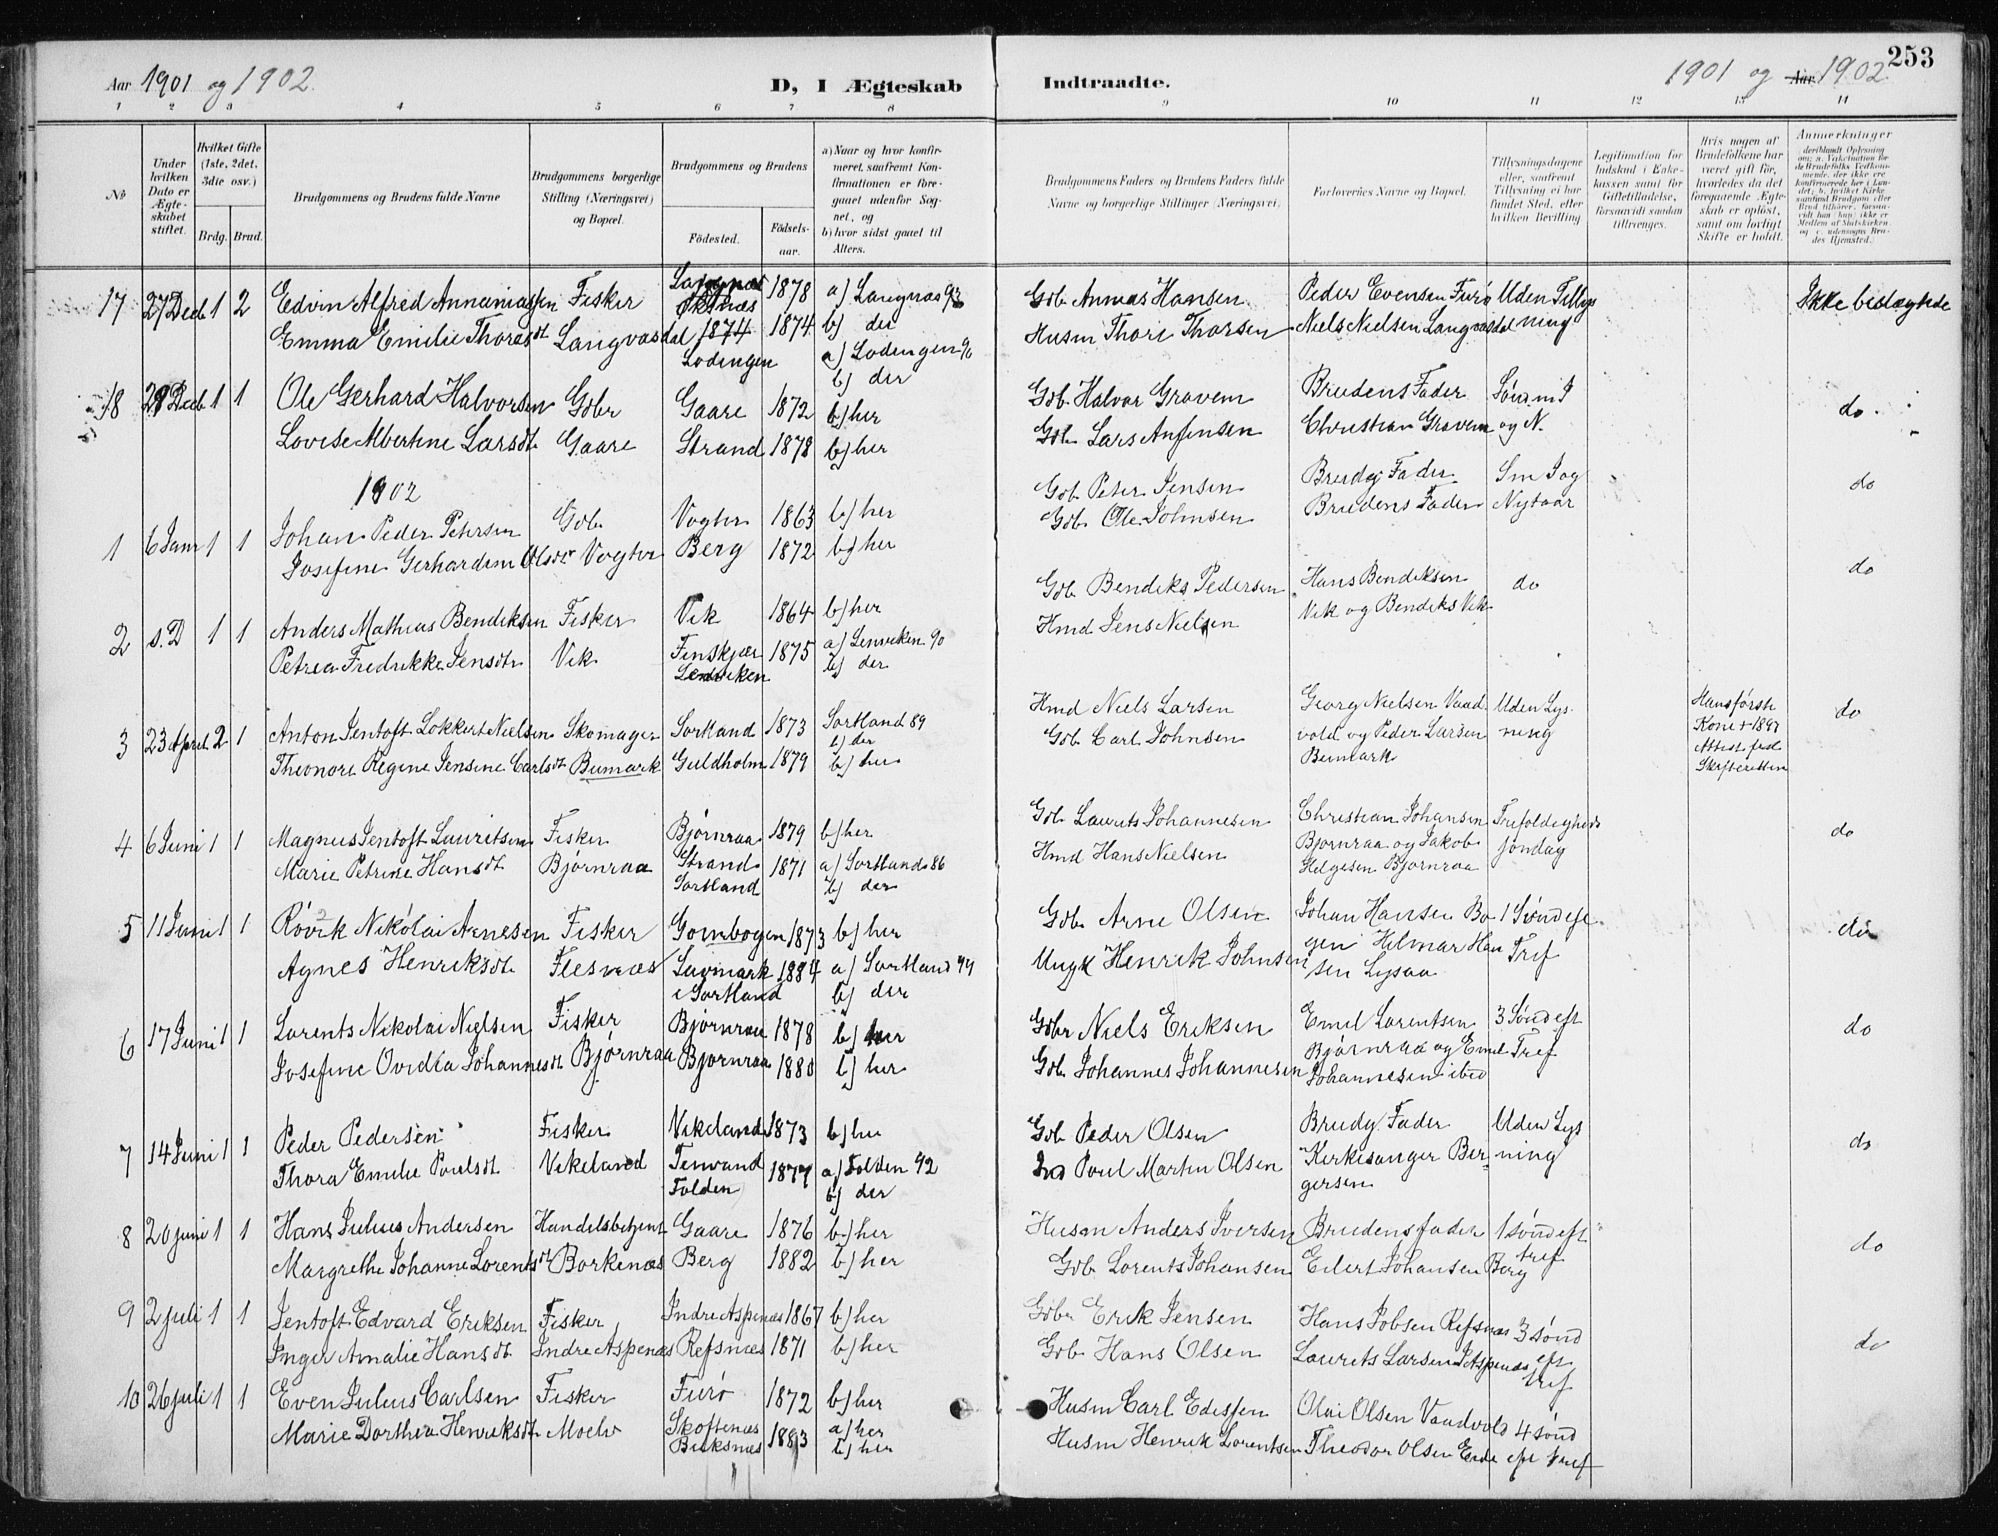 Aar 1901 og 1902. D, I Ægteskab Indtraadte. 1901 og Aar 1902. 253
1 2 3 4 5 6 7 8 9 10 11 12 13 14
No
Under hvilken Dato er Ægteskabet stiftet.
Hvilket Gifte (1ste, 2det, 3die osv.)
Brdg. Brud.
Brudgommens og Brudens fulde Navne
Brudgommens borgerlige Stilling (Næringsvei) og Bopæl.
Brudgommens og Brudens
Födested. Födsels-aar.
a) Naar og hvor konfirmeret, saafremt Konfirmationen er foregaaet udenfor Sognet, og
b) hvor sidst gaaet til Alters.
Brudgommens Faders og Brudens Faders fulde Navne og borgerlige Stillinger (Næringsvei).
Forlovernes Navne og Bopæl.
Tillysningsdagene eller, saafremt Tillysning ei har fundet Sted, efter hvilken Bevilling
Legitimation for Indskud i Enkekassen samt for Giftetilladelse, forsaavidt saadan tiltrænges.
Hvis nogen af Brudefolkene har været gift før, hvorledes da det foregaaende Ægteskab er opløst, samt om lovligt Skifte er holdt.
Anmerkninger
17 27 Decb 1 2 Edvin Alfred Annaniassen Fisker Langnæs 1878 a) Langnæs 93 Gdb Annias Hansen Peder Evensen Furø Uden Tillys Ikke beslægtede
Emma Emilie Thorasdt Langvasdal 1874 1874 b) der Husm Thore Thorsen Niels Nielsen Langvasdal ning
Lodingen a) Lodingen 90
b) der
18 28 Decb 1 1 Ole Gerhard Halvorsen Gdbr Gaare 1872 b) her Gdb. Halvor Gravem Brudens Fader Sønd m J do
Lovise Albertine Larsdt Gaare Strand 1878 b) her Gdb Lars Anfinsen Christian Gravem og N.
1902
1 6 Janr 1 1 Johan Peder Petersen Gdb. Vogter 1863 b) her Gdb. Peter Jensen Brudg Fader Sm J og do
Josefine Gerhardine Olsdt Vogter Berg 1872 b) her Gdb. Ole Johnsen Brudens Fader Nytaar
2 s. D 1 1 Anders Mathias Bendiksen Fisker Vik 1864 b) her Gdb. Bendiks Pedersen Hans Bendiksen do do
Petrea Fredrikke Jensdt Vik Finskjær 1875 a) Lenviken 90 Hmd Jens Nielsen Vik og Bendiks Vik
Lenviken b) der
3 23 April 2 1 Anton Jentoft Lokkert Nielsen Skomager Sortland 1873 Sortland 89 Hmd Niels Larsen Georg Nielsen Vaad Uden Lys Hans første do
b) der Kone + 1897
Theonore Regine Jensine Carlsdt Bumark Guldholm 1879 b) her Gdb. Carl Johnsen vold og Peder Larsen ning
Bumark Skifteretten
4 6 Juni 1 1 Magnus Jentoft Lauritsen Fisker Bjørnraa 1879 b) her Gdb. Laurits Johannesen Christian Johansen Trefoldigheds do
Marie Petrine Hansdt Bjørnraa Strand 1871 a) Sortland 86 Hmd Hans Nielsen Bjørnraa og Jakob søndag
Sortland b) der Helgesen Bjørnraa
5 11 Juni 1 1 Røvik Nikolai Arnesen Fisker Gombogen 1873 b) her Gdb. Arne Olsen Johan Hansen Bo 1 Sønd eft do
Agnes Henriksdt Flesnæs Lavmark 1884 a) Sortland 99 Ungk Henrik Johnsen gen Hilmar Han Tref
i Sortland b) der sen Lysaa
6 17 Juni 1 1 Lorents Nikolai Nielsen Fisker Bjørnraa 1878 b) her Gdbr Niels Eriksen Emil Lorentsen 3 Sønd eft do
Josefine Ovidia Johannesdt Bjørnraa Bjørnraa 1880 b) her Gdb. Johannes Johannesen Bjørnraa og Emil Tref
Johannesen ibid
7 14 Juni 1 1 Peder Pedersen Fisker Vikeland 1873 b) her Gdb. Peder Olsen Brudg Fader Uden Lys do
Thora Emilie Poulsdt Vikeland Tenvand 1877 a) Folden 92 Ind Poul Martin Olsen Kirkesanger Bir ning
Folden b) der gersen
8 20 juni 1 1 Hans Julius Andersen Handelsbetjent Gaare 1876 b) her Husm Anders Iversen Brudens fader 1 sønd eft do
Margrethe Johanne Lorentsdt Borkenæs Berg 1882 b) her Gdb. Lorents Johansen Eilert Johansen Berg tref
9 2 juli 1 1 Jentoft Edvard Eriksen Fisker Indre Aspenæs 1867 b) her Gdbr Erik Jensen Hans Jobsen Refsnæs 3 sønd
Inger Amalie Hansdt Indre Aspenæs Refsnæs 1871 b) her Gdb. Hans Olsen Laurits Larsen I Aspenæs eft do
tref
10 26 juli 1 1 Even Julius Carlsen Fisker Furø 1872 b) her Husm Carl Edissen Olai Olsen Vaadvold 4 sønd
Marie Dorthea Henriksdt Moelv Skoftenæs 1883 a) her Husm Henrik Lorentsen Theodor Olsen Ende eft tref
Birksnæs b) her